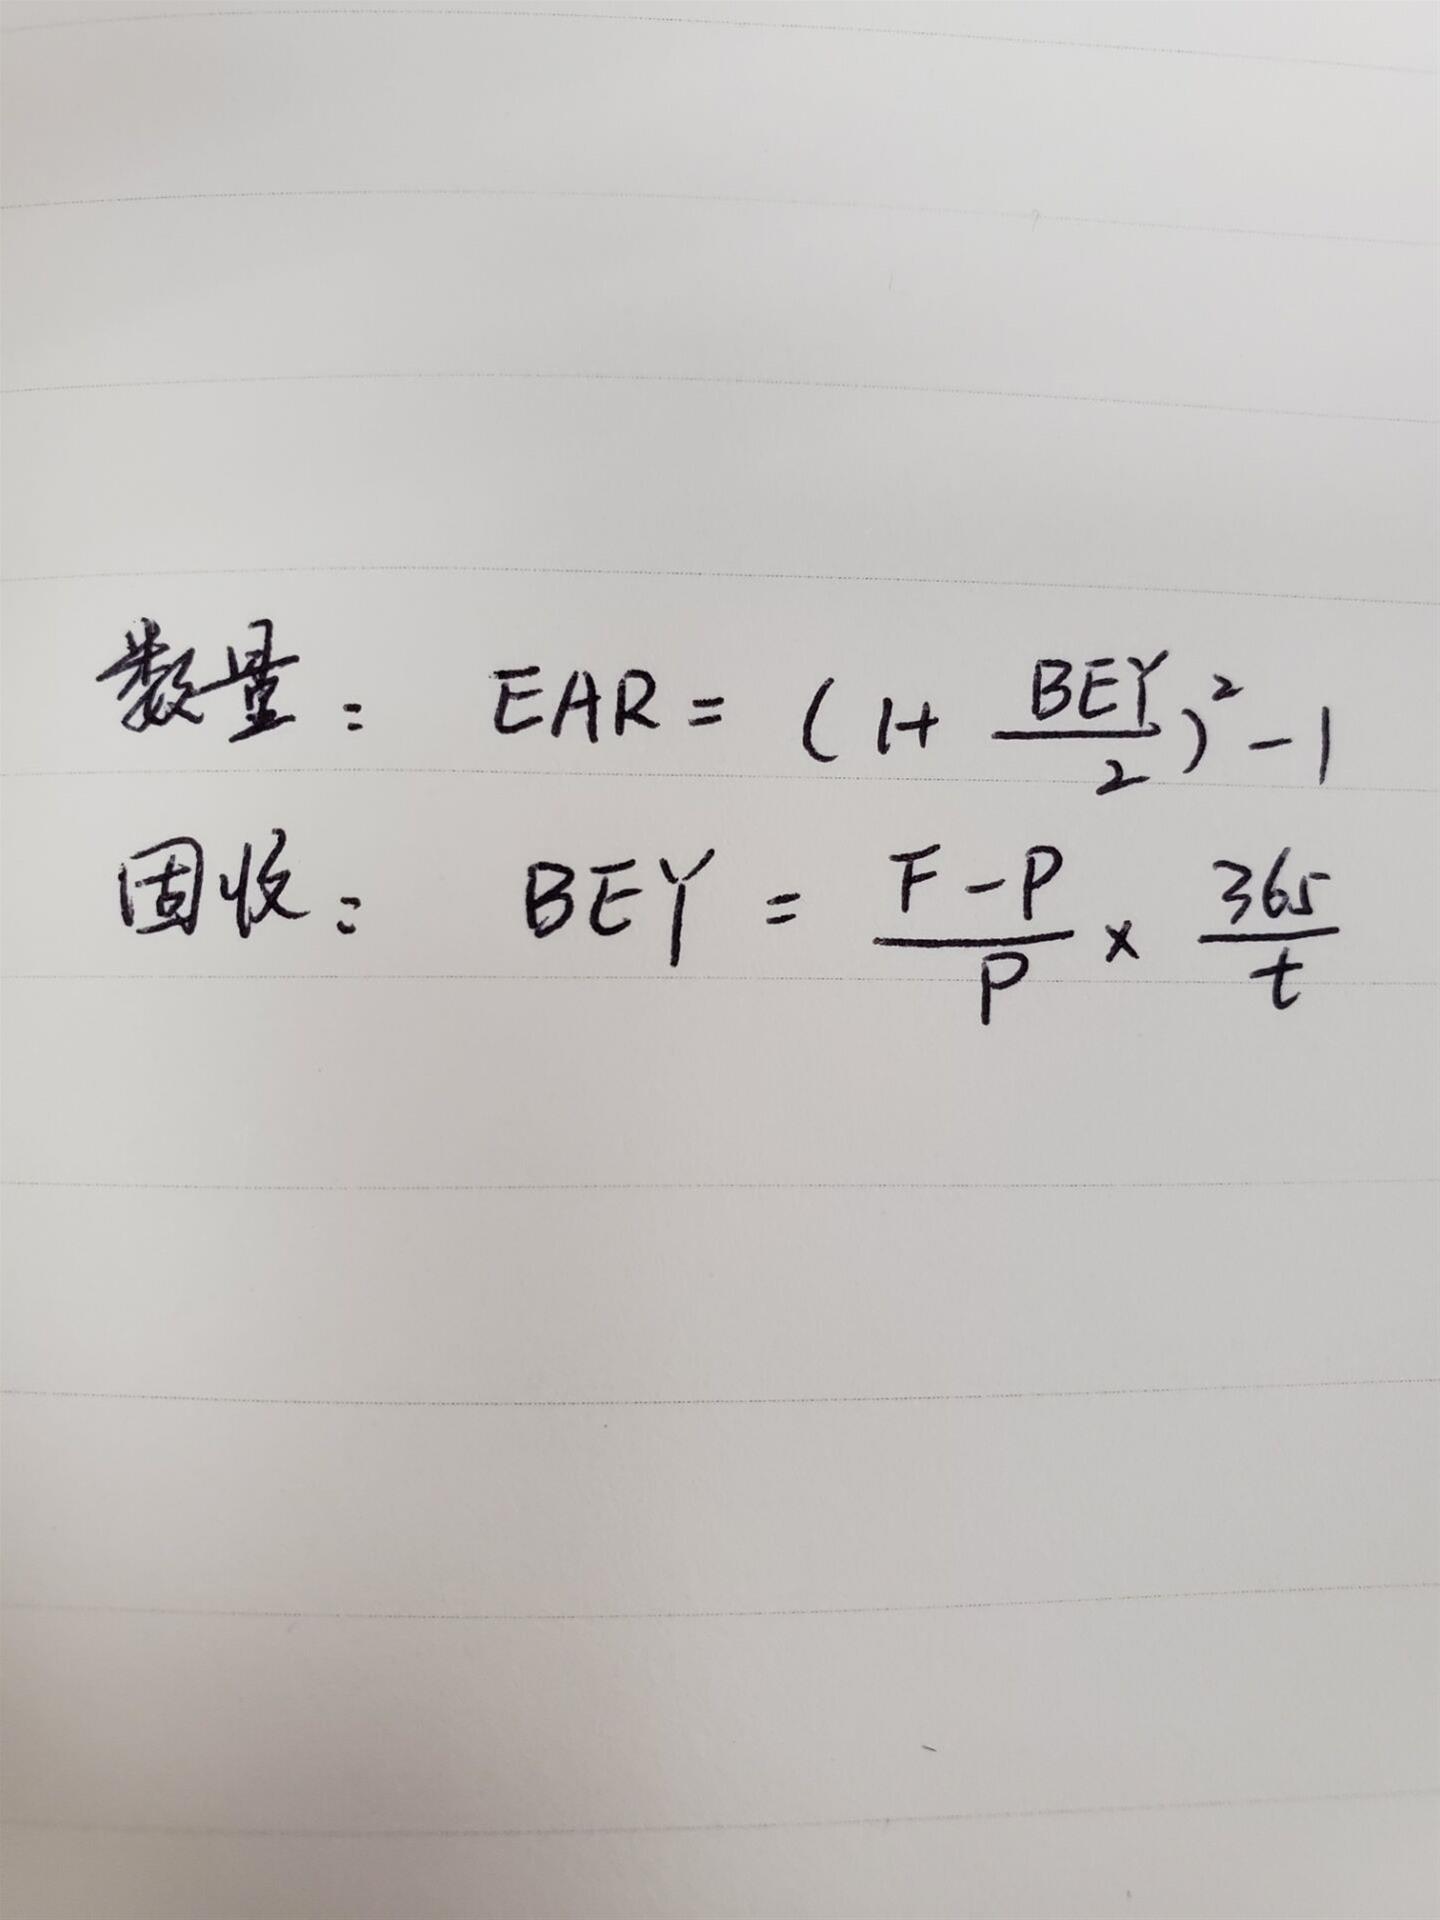 数量: EAR = (1+ BEY/2)² - 1
固收: BEY = F-P/P × 365/t